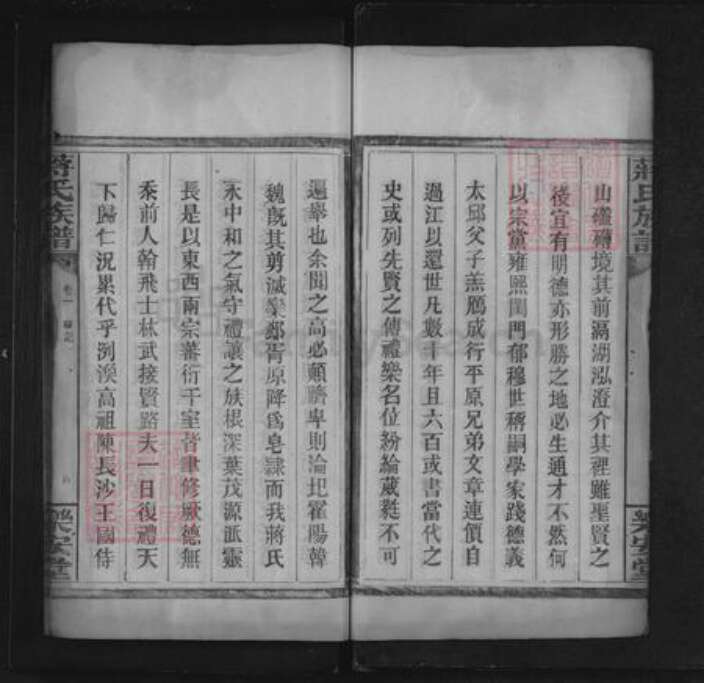 蔣氏族譜
樂安堂
山礠礴境其前滆湖泓澄介其裡雖聖賢之
後宜有明德亦形勝之地必生通才不然何
以宗黨雍熙閨門郁穆世稱嗣學家踐德義
太邱父子羔鴈成行平原兄弟文章連價自
過江以還世凡數十年且六百或書當代之
史或列先賢之傳禮樂名位紛綸葳蕤不可
遍舉也余聞之高必顛隮卑則淪圯霍陽韓
魏旣其剪滅欒郤胥原降爲皂隷而我蔣氏
永中和之氣守禮讓之族根深葉茂源派靈
長是以東西南宗蕃衍千室皆聿修厥德無
忝前人翰飛士林武接賢路夫一日復禮天
下歸仁況累代乎洌湨高祖陳長沙王國侍
蔣氏族譜
卷一
樂安堂